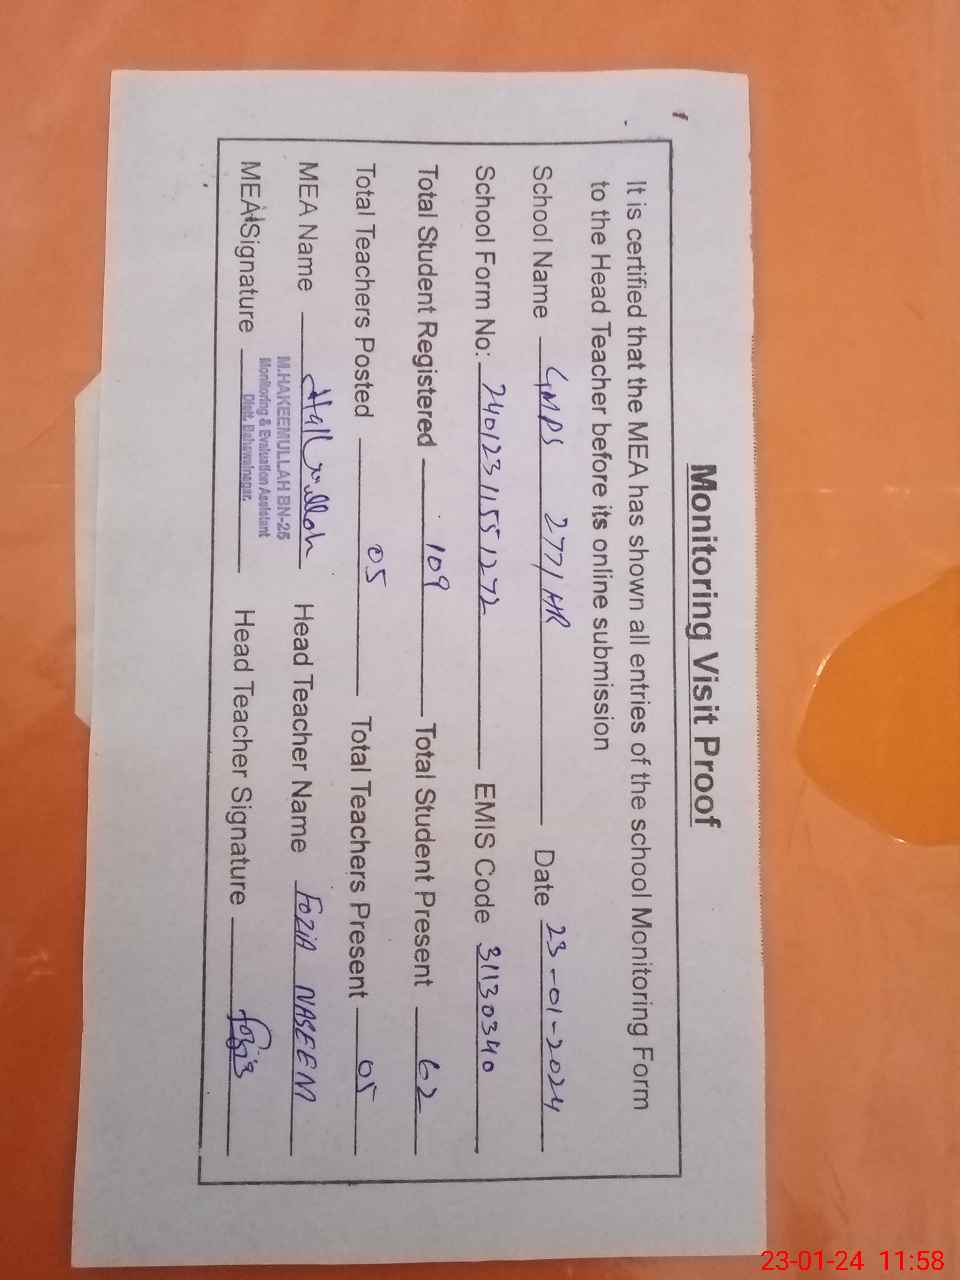 Monitoring Visit Proof
It is certified that the MEA has shown all entries of the school Monitoring Form
to the Head Teacher before its online submission
School Name GMPS 277/HR Date 23-01-2024
School Form No: 24012311551272 EMIS Code 31130340
Total Student Registered 109 Total Student Present 62
Total Teachers Posted 05 Total Teachers Present 05
MEA Name Head Teacher Name FOZIA NASEEM
M.HAKEEMULLAH BN-25
Monitoring & Evaluation Assistant
Distt. Bahawalnagar.
MEA Signature Head Teacher Signature Fozia
23-01-24 11:58